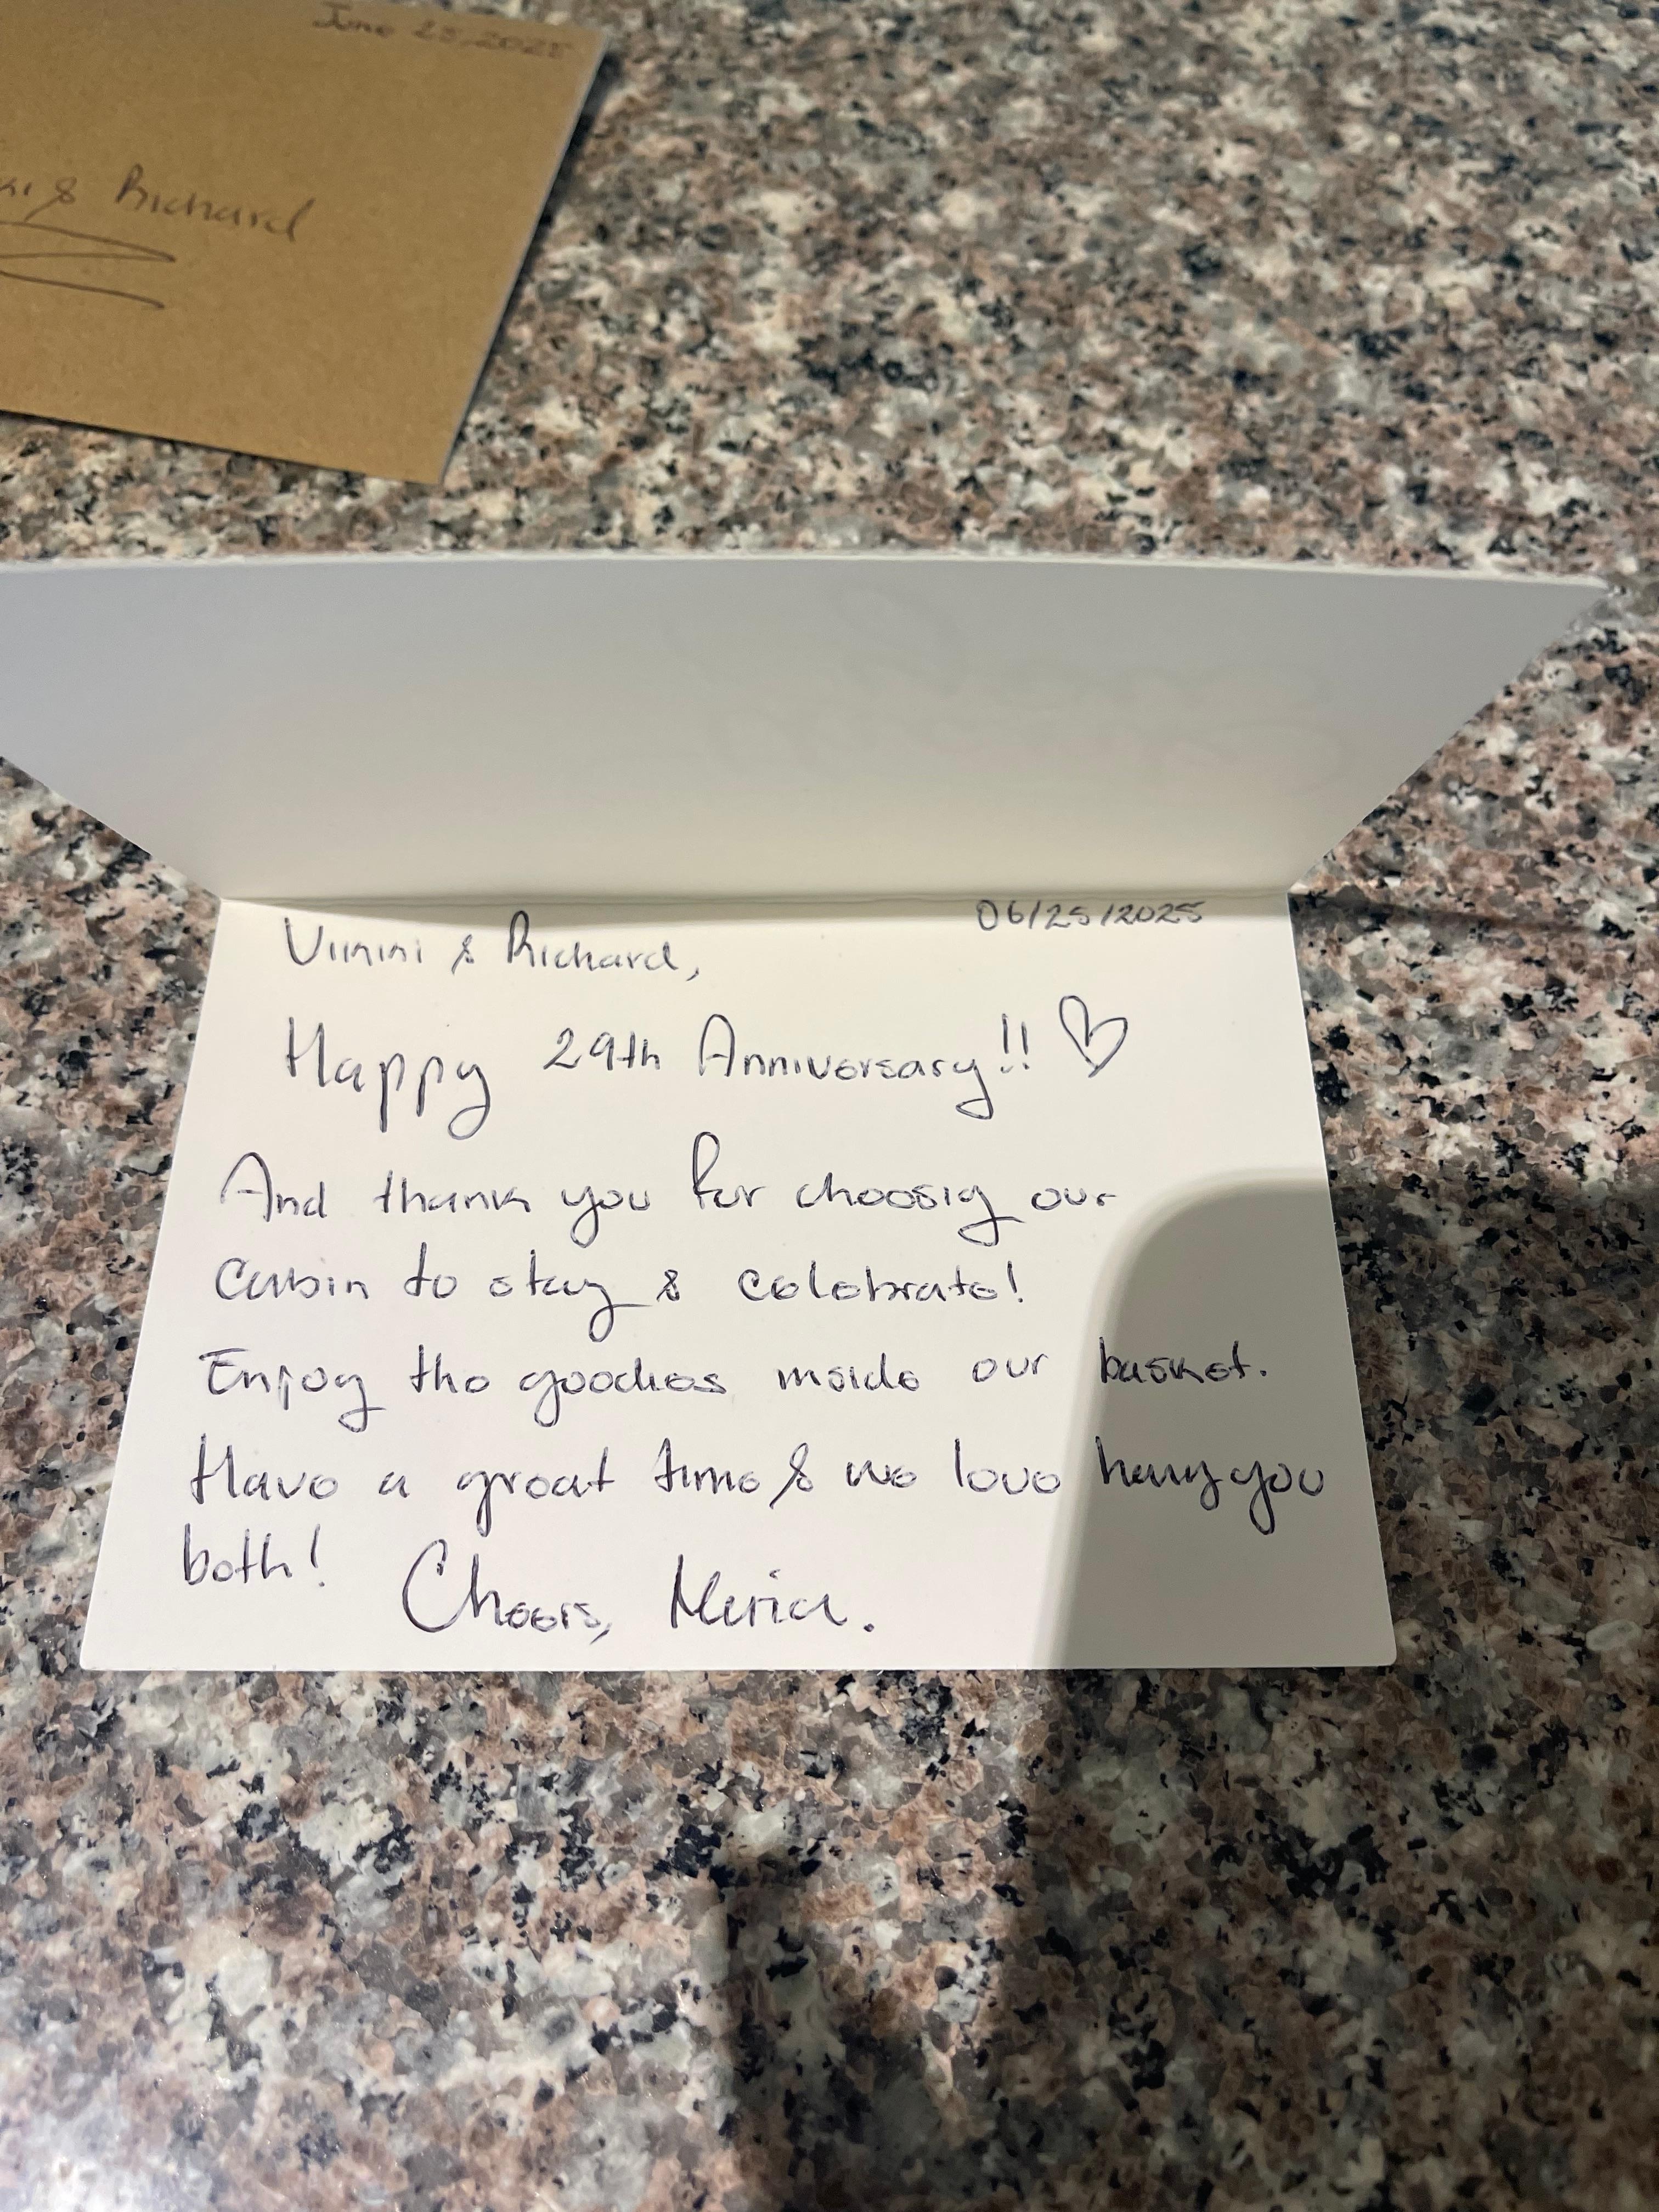 June 25, 2025
& Richard
06/25/2025
Vinni & Richard,
Happy 29th Anniversary!! ♡
And thank you for choosig our
cabin to stay & celebrate!
Enjoy the goodies inside our basket.
Have a great time & we love havg you
both! Cheers, Maria.